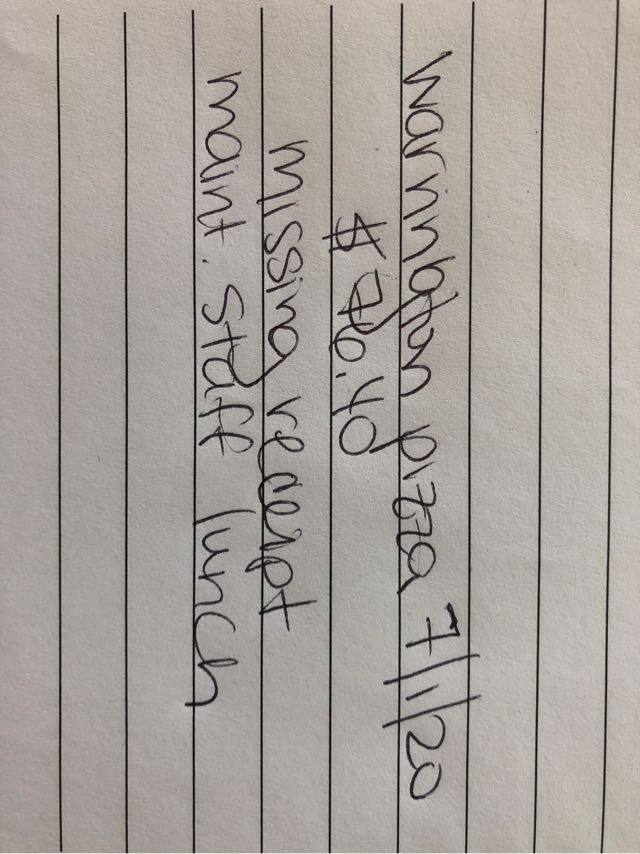 warrington pizza 7/1/20
$76.40
missing receipt
maint. staff lunch